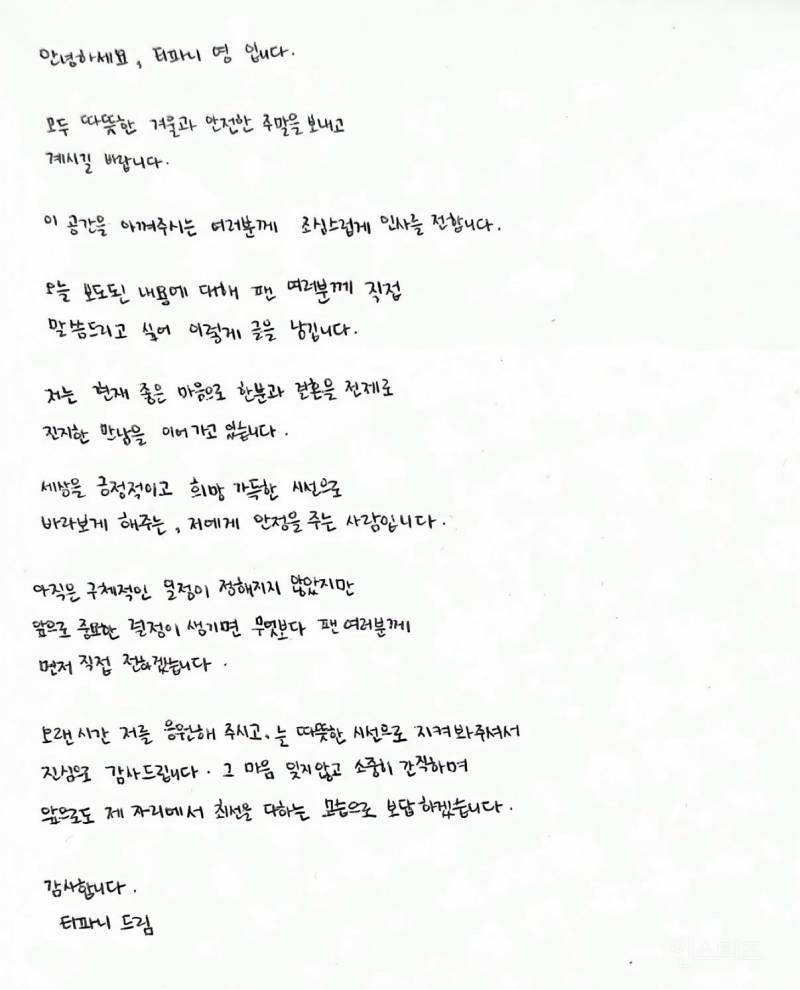 안녕하세요, 티파니 영 입니다.
모두 따뜻한 겨울과 안전한 주말을 보내고
계시길 바랍니다.
이 공간을 아껴주시는 여러분께 조심스럽게 인사를 전합니다.
오늘 보도된 내용에 대해 팬 여러분께 직접
말씀드리고 싶어 이렇게 글을 남깁니다.
저는 현재 좋은 마음으로 한분과 결혼을 전제로
진지한 만남을 이어가고 있습니다.
세상을 긍정적이고 희망 가득한 시선으로
바라보게 해주는, 저에게 안정을 주는 사람입니다.
아직은 구체적인 일정이 정해지지 않았지만
앞으로 중요한 결정이 생기면 무엇보다 팬 여러분께
먼저 직접 전하겠습니다.
오랜시간 저를 응원해 주시고, 늘 따뜻한 시선으로 지켜봐주셔서
진심으로 감사드립니다. 그 마음 잊지않고 소중히 간직하며
앞으로도 제 자리에서 최선을 다하는 모습으로 보답하겠습니다.
감사합니다.
티파니 드림
인스티즈